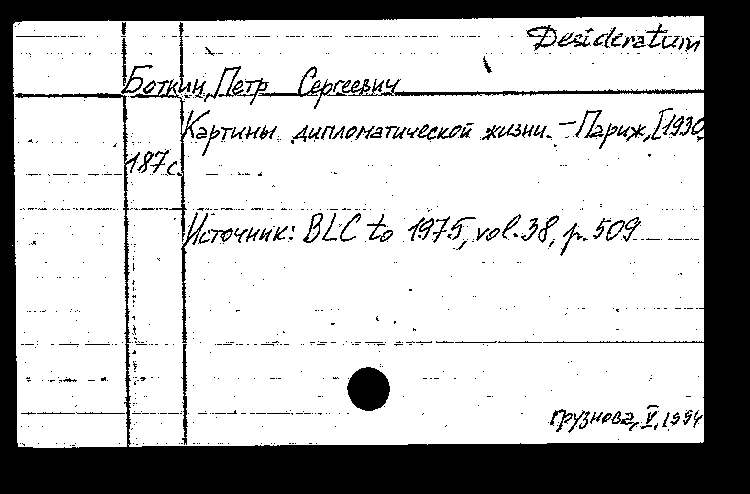 Desideratum
Боткин, Петр Сергеевич
Картины дипломатической жизни. – Париж, [1930,
187 с.
Источник: BLC to 1975, vol. 38, p. 509
Грузнова, V, 1994